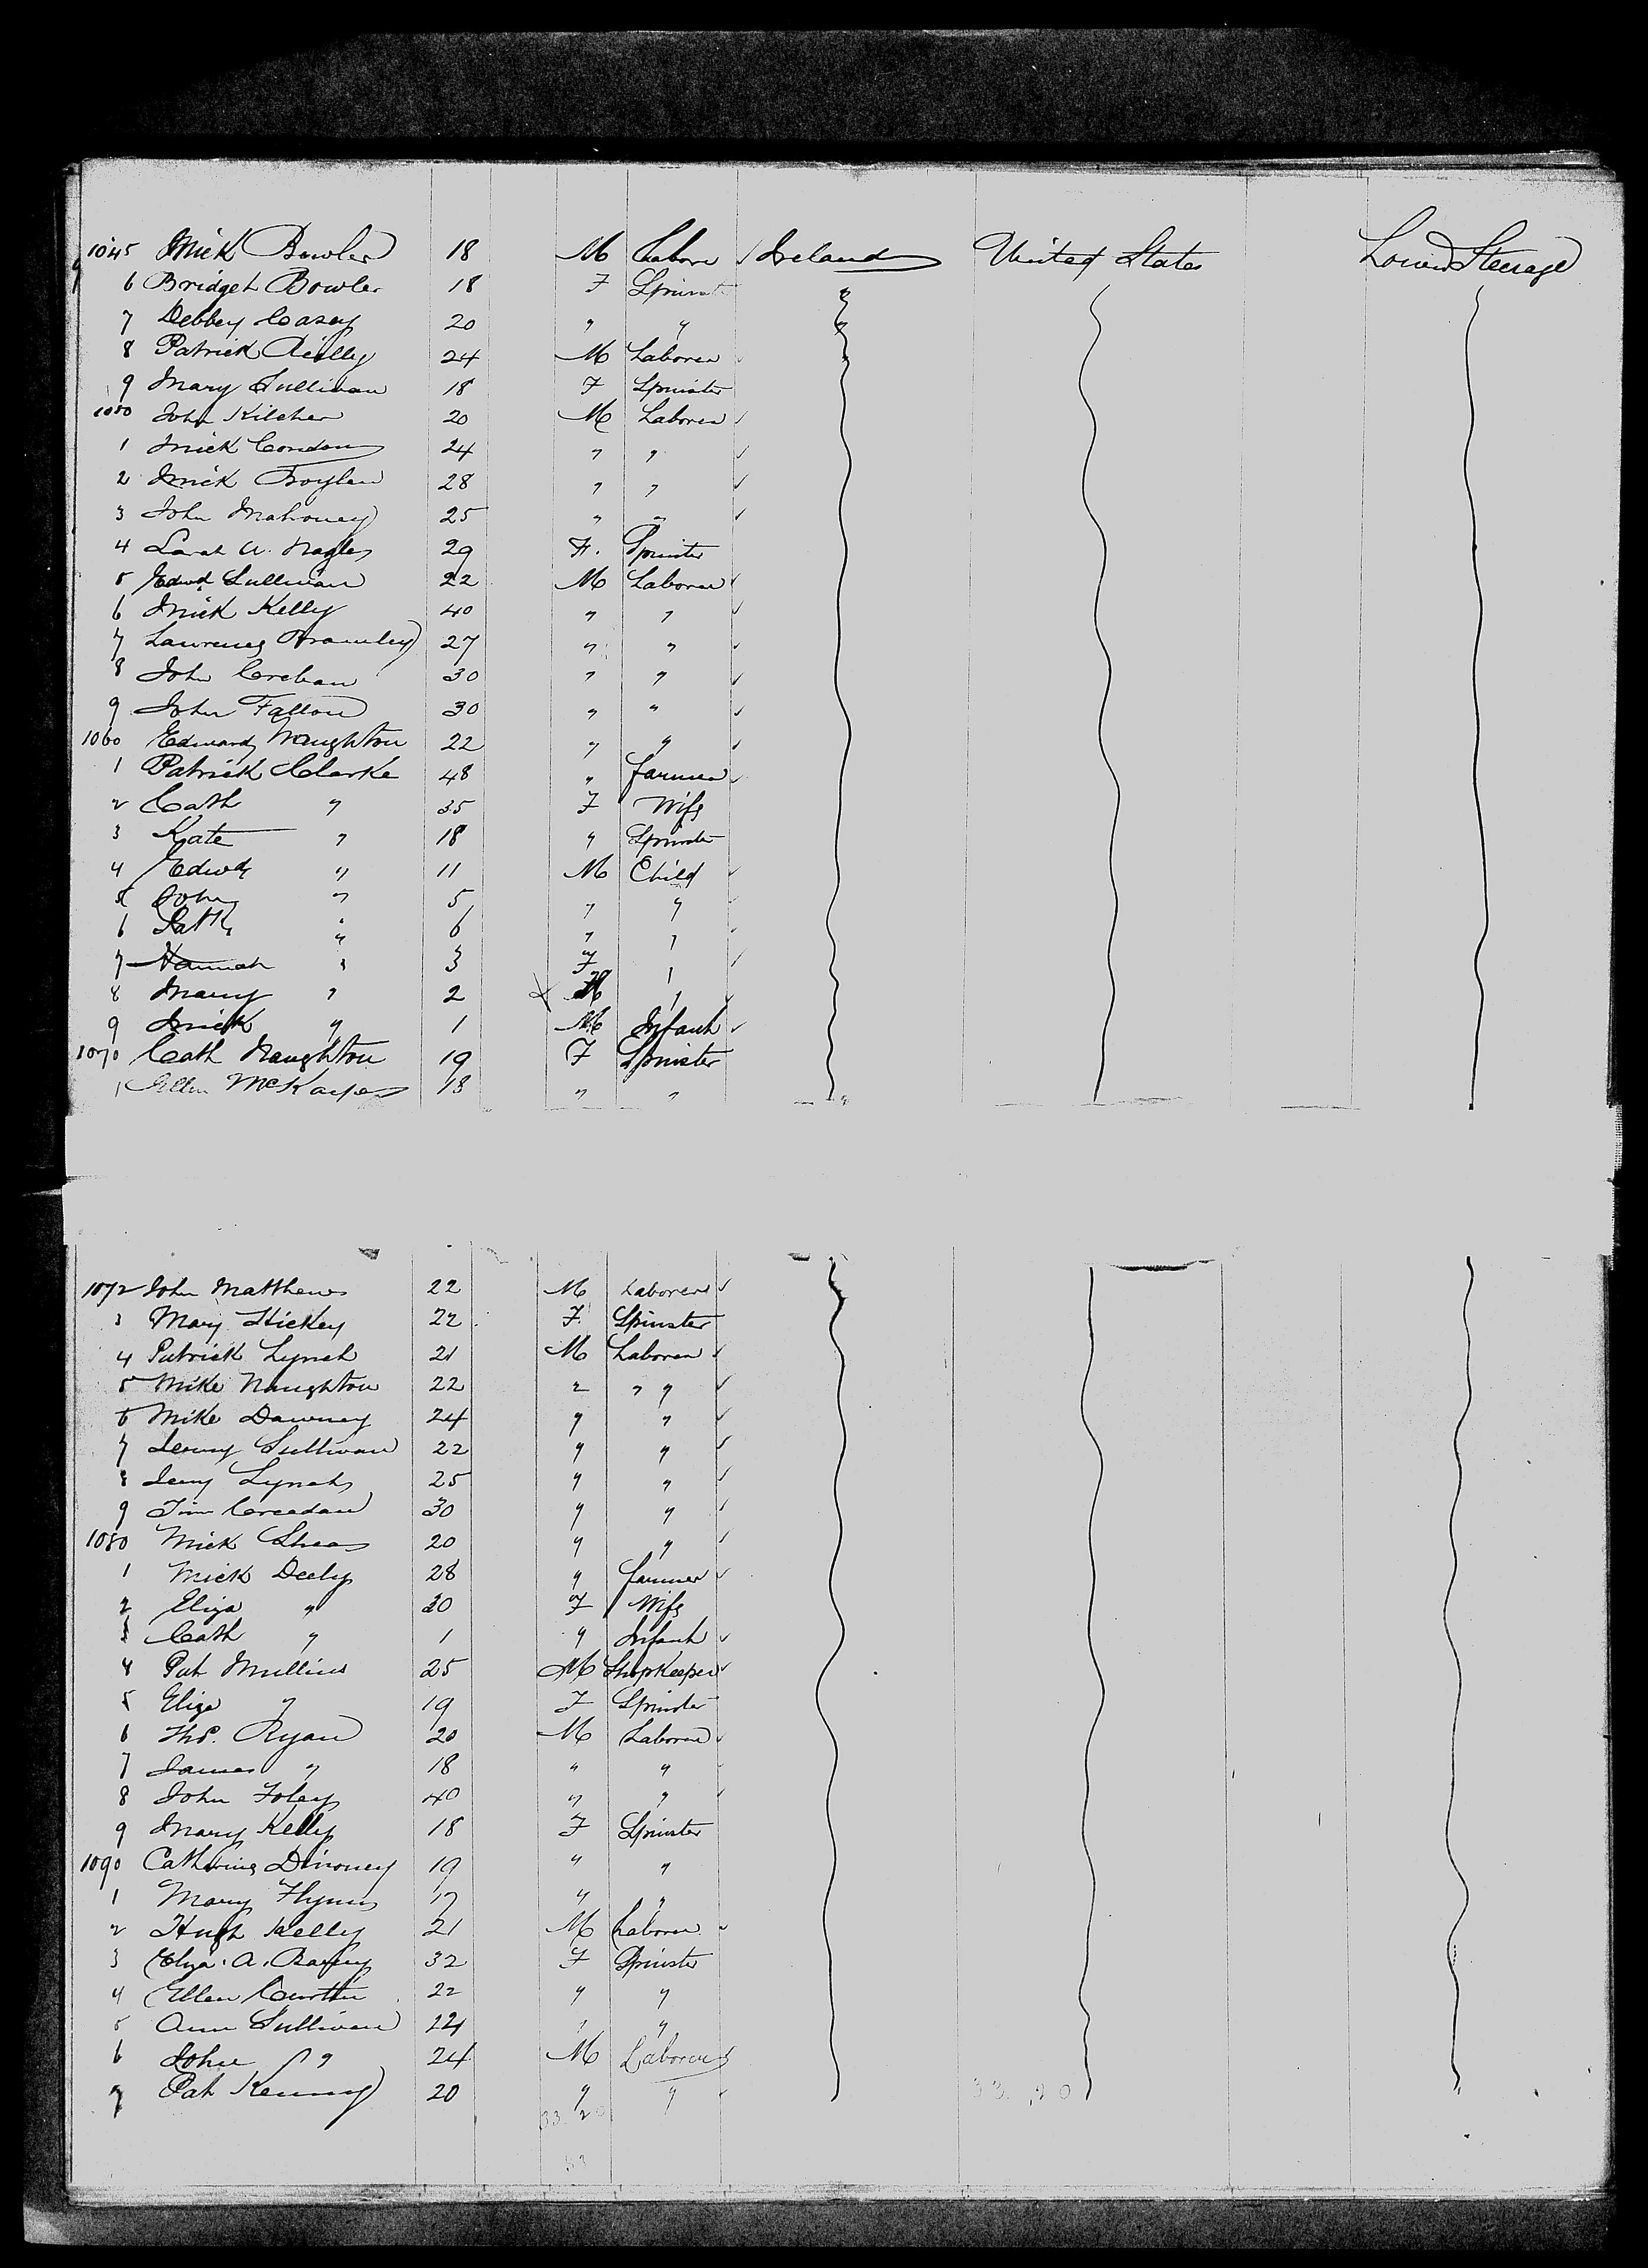 1045 Mick Bowler 18 M Labore ✓ Ireland United States Lower Steerage
6 Bridget Bowler 18 F Spinst
7 Debbey Casey 20 " "
8 Patrick Reilly 24 M Laborer
9 Mary Sullivan 18 F Spinster
1050 John Kilcher 20 M Laborer ✓
1 Mick Condon 24 " " ✓
2 Mick Boylen 28 " " ✓
3 John Mahoney 25 " " ✓
4 Sarah A. Nagles 29 F. Spinster
5 Edwd Sullivan 22 M Laborer ✓
6 Mick Kelly 40 " " ✓
7 Lawrence 27 " " ✓
8 John Crehan 30 " " ✓
9 John Fallon 30 " " ✓
1060 Edward Naughton 22 " " ✓
1 Patrick Clarke 48 " farmer ✓
2 Cath " 35 F Wife
3 Kate " 18 " Spinster
4 Edwd " 11 M Child ✓
5 John " 5 " "
6 Patk " 6 " "
7 Hannah " 3 F " ✓
8 Mary " 2 " ✓
9 Mick " 1 M Infant ✓
1070 Cath Naughton 19 F Spinster
1 Ellen 18 " "
1072 John Matthews 22 M Laborer ✓
3 Mary Hickey 22 F. Spinster
4 Patrick Lynch 21 M Laborer ✓
5 Mike Naughton 22 " " " ✓
6 Mike Dawney 24 " " ✓
7 Jerry Sullivan 22 " " ✓
8 Jerry Lynch 25 " " ✓
9 Tim Creedan 30 " " ✓
1080 Mick Shea 20 " " ✓
1 Mick Deely 28 " farmer ✓
2 Eliza " 30 F Wife
3 Cath " 1 " Infant ✓
4 Pat Mullins 25 M Shopkeeper ✓
5 Eliza " 19 F Spinster
6 Thos. Ryan 20 M Laborer ✓
7 James " 18 " "
8 John Foley 40 " " ✓
9 Mary Kelly 18 F Spinster
1090 Catherine Dinoney 19 " "
1 Mary Flynn 17 " "
2 Hugh Kelly 21 M Laborer ✓
3 Eliza. A. 32 F Spinster
4 Ellen Curtin 22 " "
5 Ann Sullivan 24 " "
6 John " 24 M Laborer ✓
7 Pat Kenny 20 " "